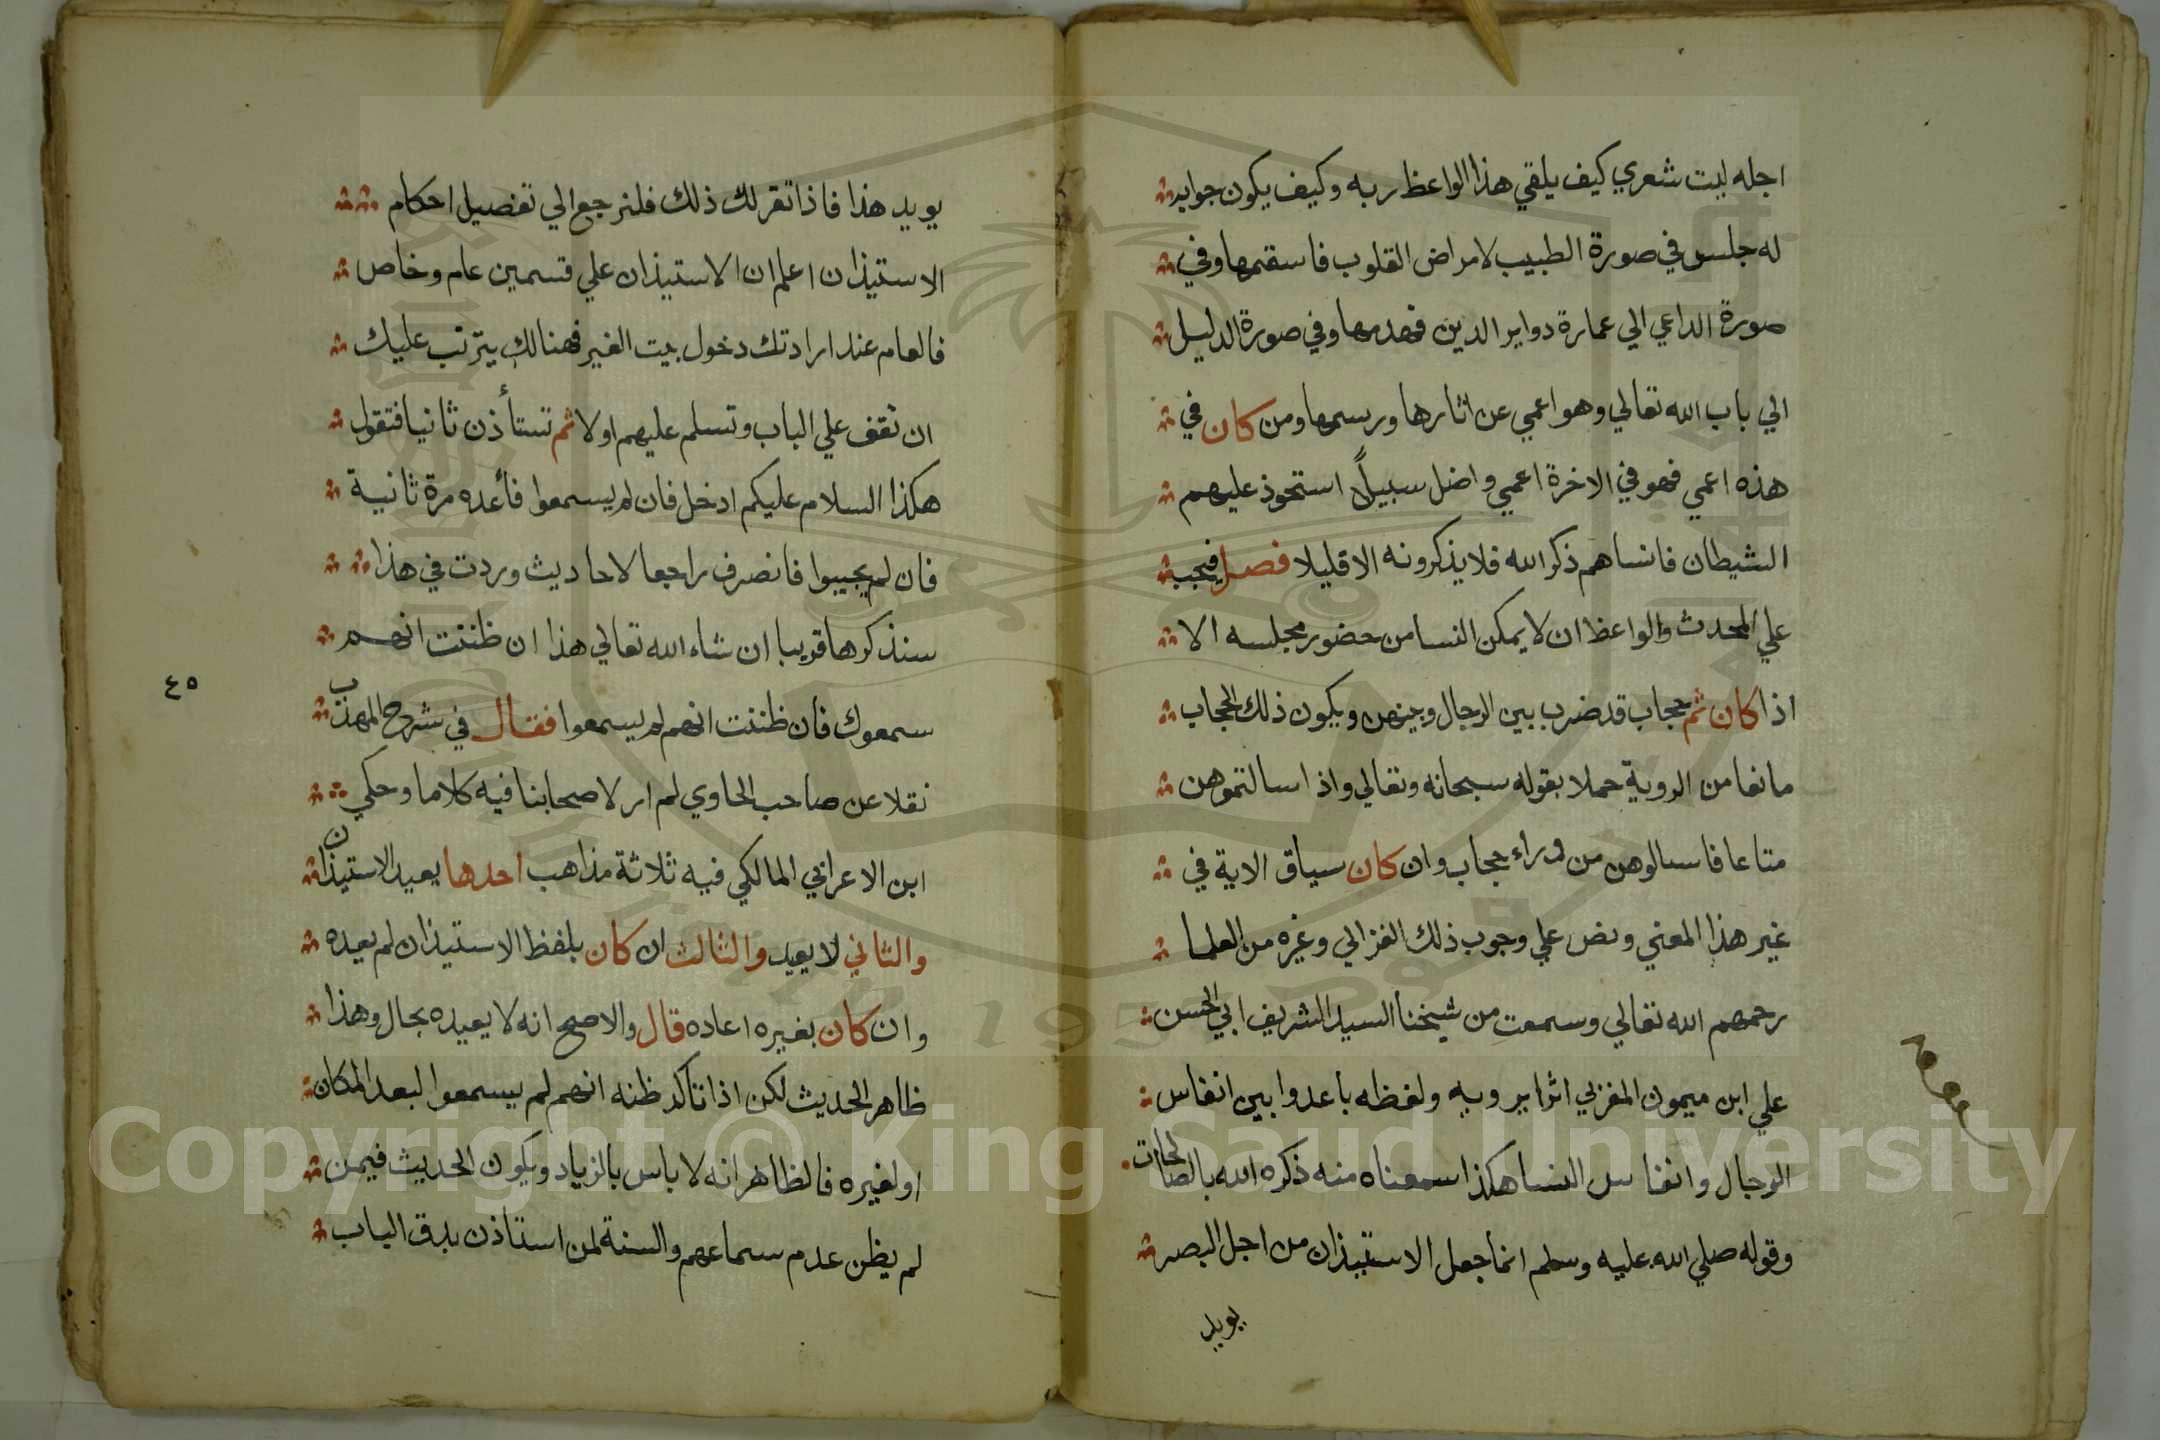 اجله ليت شعري كيف يلقي هذا الواعظ ربه وكيف يكون جوابه
له جلس في صورة الطبيب لامراض القلوب فاسقمها وفي
صورة الداعي الي عمارة دواير الدين فهدمها وفي صورة الدليل
الي باب الله تعالي وهو اعمي عن اثارها ورسمها ومن كان في
هذه اعمي فهو في الاخرة اعمي واضل سبيلاً استحوذ عليهم
الشيطان فانساهم ذكر الله فلا يذكرونه الا قليلا فصل فيجب
علي المحدث والواعظ ان لا يمكن النسا من حضور مجلسه الا
اذا كان ثم حجاب قد ضرب بين الرجال وبينهن ويكون ذلك الحجاب
مانعا من الروية حملا بقوله سبحانه وتعالي واذا سالتموهن
متاعا فاسالوهن من وراء حجاب وان كان سياق الاية في
غير هذا المعني ونص علي وجوب ذلك الغزالي وغيره من العلما
رحمهم الله تعالي وسمعت من شيخنا السيد الشريف ابي الحسن
علي ابن ميمون المغربي اثرا يرويه ولفظه باعدوا بين انفاس
الرجال وانفاس النسا هكذا سمعناه منه ذكره الله بالصالحات
وقوله صلي الله عليه وسلم انما جعل الاستيذان من اجل البصر
يويد
يويد هذا فاذا تقر لك ذلك فلنرجع الي تفصيل احكام
الاستيذان اعلم ان الاستيذان علي قسمين عام وخاص
فالعام عند ارادتك دخول بيت الغير فهنالك يترتب عليك
ان تقف علي الباب وتسلم عليهم اولا ثم تستأذن ثانيا فتقول
هكذا السلام عليكم ادخل فان لم يسمعوا فأعده مرة ثانية
فان لم يجيبوا فانصرف راجعا لاحاديث وردت في هذا
سنذكرها قريبا ان شاء الله تعالي هذا ان ظننت انهم
سمعوك فان ظننت انهم لم يسمعوا فقال في شرح المهذب
٤٥
نقلا عن صاحب الحاوي لم ار لاصحابنا فيه كلاما وحكي
ابن الاعرابي المالكي فيه ثلاثة مذاهب احدها يعيد الاستيذان
والثاني لا يعيد والثالث ان كان بلفظ الاستيذان لم يعيده
وان كان بغيره اعاده قال والاصح انه لا يعيده بحال وهذا
ظاهر الحديث لكن اذا تاكد ظنه انهم لم يسمعوا لبعد المكان
او لغيره فالظاهر انه لا باس بالزياد ويكون الحديث فيمن
لم يظن عدم سماعهم والسنة لمن استاذن بدق الباب
Copyright © King Saud University
1957